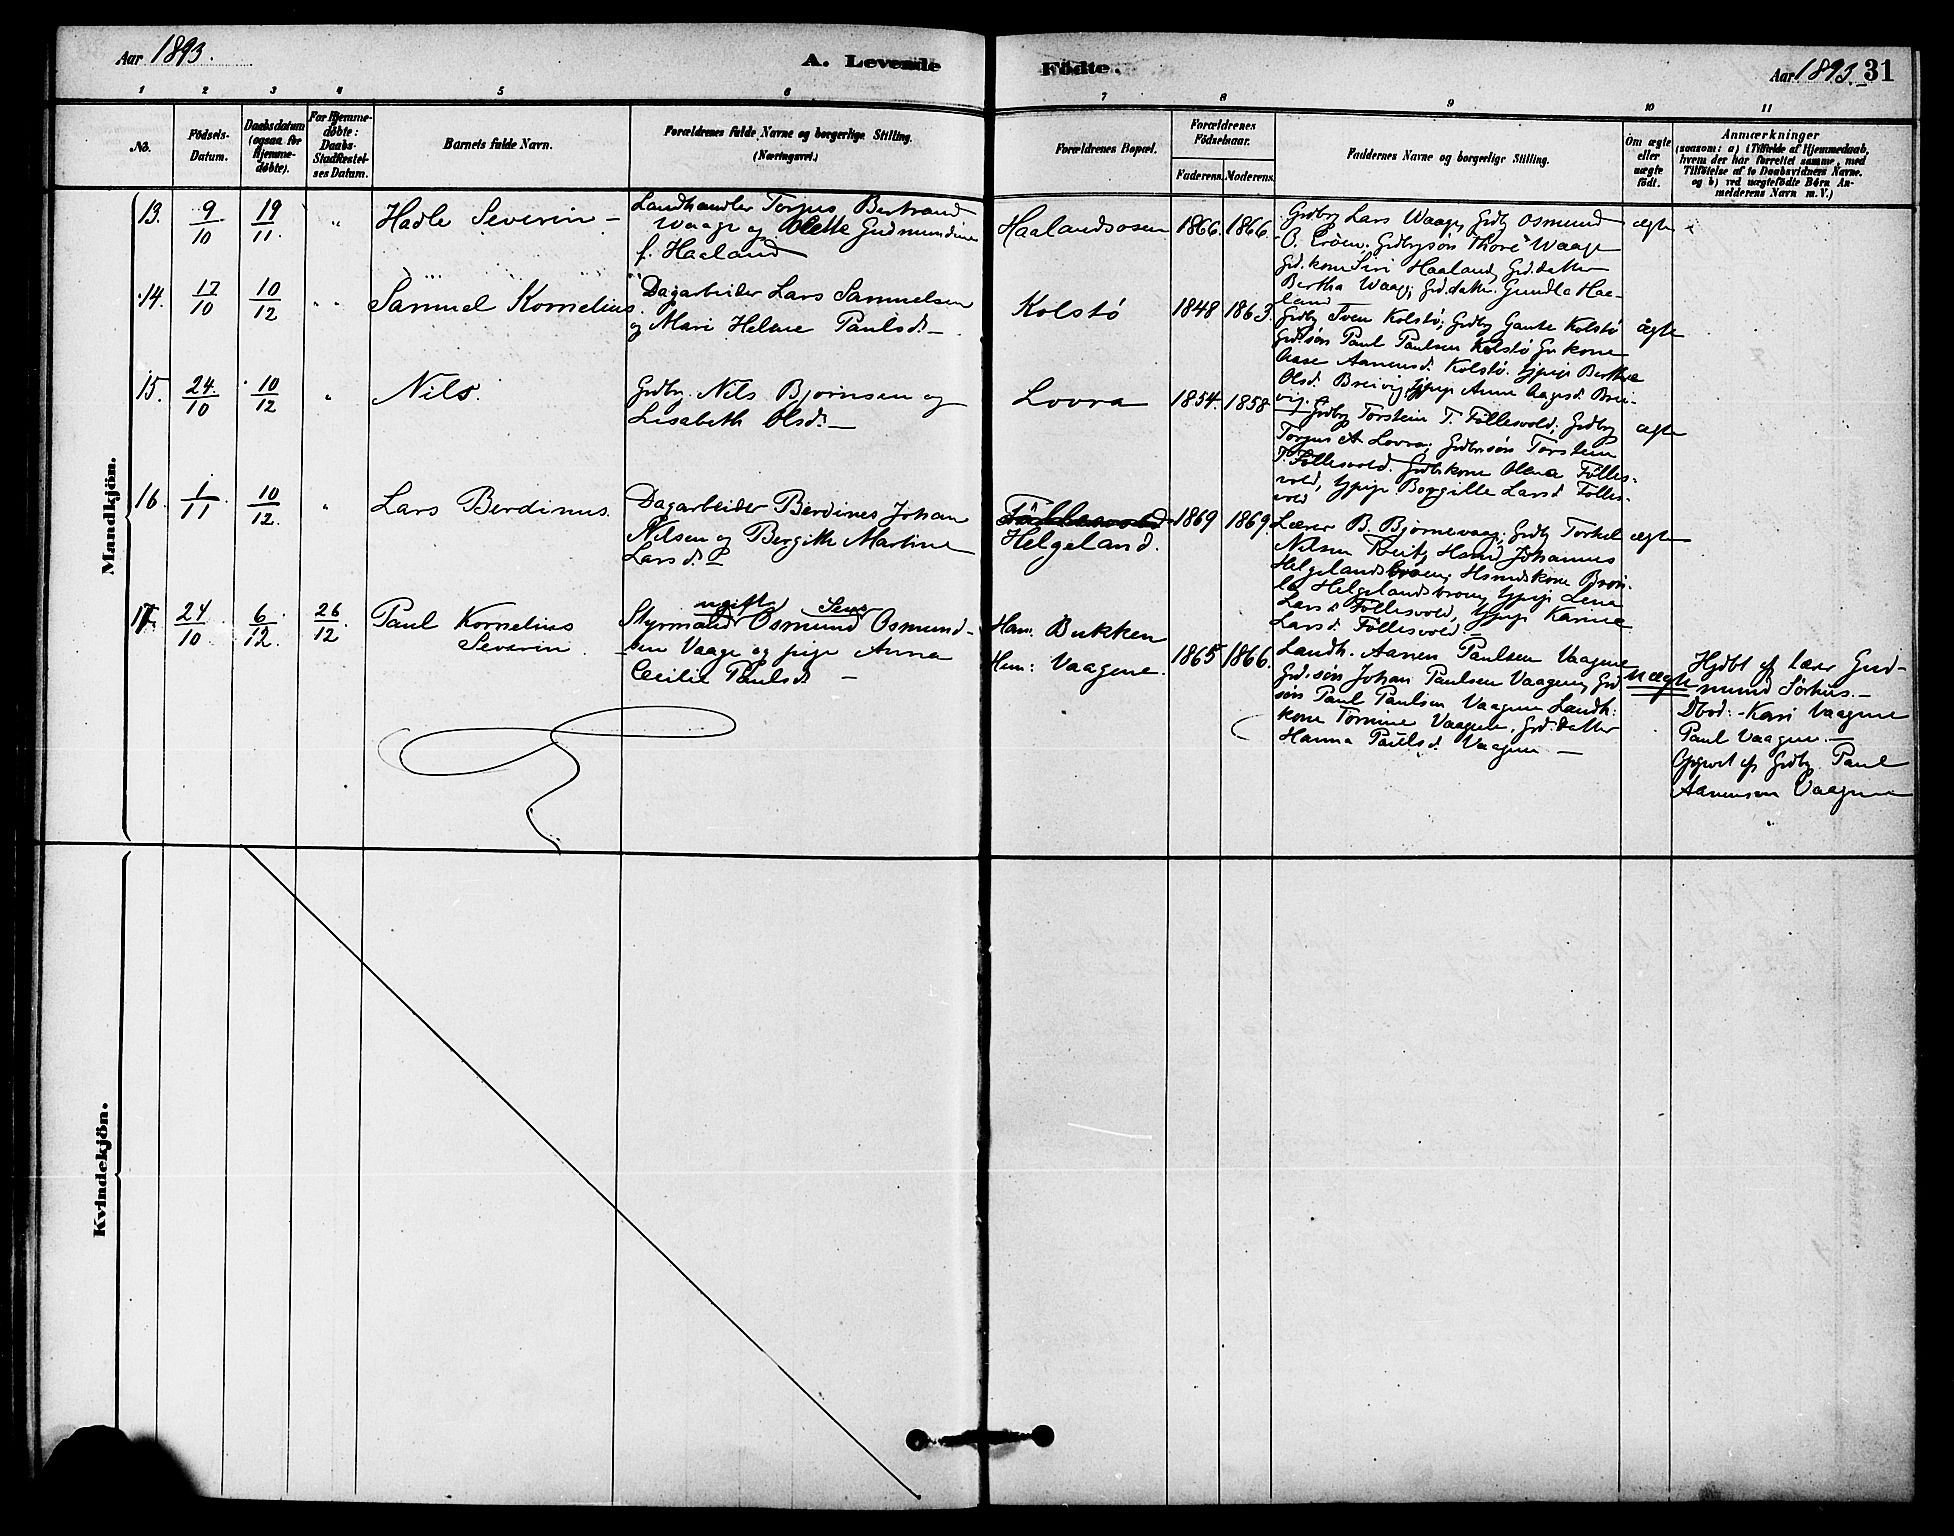 Aar 1893.
A. Levende Födte.
Aar 1893. 31
1 2 3 4 5 6 7 8 9 10 11
No.
Födsels-
Datum.
Daabsdatum
(ogsaa for
Hjemme-
døbte).
For Hjemme-
døbte:
Daabs-
Stadfæstel-
ses Datum.
Barnets fulde Navn.
Forældrenes fulde Navne og borgerlige Stilling.
(Næringsvei.)
Forældrenes Bopæl.
Forældrenes
Födselsaar.
Faderens. Moderens.
Faddernes Navne og borgerlige Stilling.
Om ægte
eller
uægte
födt.
Anmærkninger
(saasom: a) i Tilfælde af Hjemmedaab,
hvem der har forrettet samme, med
Tilföielse af to Daabsvidners Navne.
og b) ved uægtefödte Börn An-
melderens Navn m.V.)
Mandkjön.
13. 9/10 19/11. " Hadle Severin -
Landhandler Torjus Bertrand
Waage og Olette Gudmundine
f. Haaland
Haalandsosen 1866. 1866.
Grdbr Lars Waage, Grdbr Osmund
O. Eröen, Grdbrsön Thore Waage
Grd. kone Siri Haaland, Grd. datter
Bertha Waage, Grd. datter Gundla Haa-
land
ægte
14. 17/10 10/12 " " Samuel Kornelius.
Dagarbeider Lars Samuelsen
og Mari Helene Paulsd. -
Kolstö 1848 1863.
Grdbr Sven Kolstö, Grdbr Gaute Kolstö
Grd. sön Paul Paulsen Kolstö Gr. kone
Aase Aanensd. Kolstö. Ypige Berthe
Olsd. Breivig, Ypige Anne Aagesd. Brei-
vig.
ægte
15. 24/10 10/12 " Nils.
Grdbr. Nils Bjørnsen og
Lisabeth Olsd. -
Lovra 1854. 1858
Grdbr Torstein T. Föllesvold, Grdbr
Torjus A. Lovra, Grdbrsön Torstein
T. Föllesvold. Grdbrkone Olena Fölles-
vold, Ypige Borgille Larsd. Fölles-
vold
ægte
16. 1/11. 10/12. " Lars Berdinus.
Dagarbeider Berdines Johan
Nilsen og Bergitte Martine
Larsd.
Föllesvold
Helgeland. 1869 1869.
Lærer B. Bjørnevaag, Grdbr Torkel
Nilsen, Hsmd Johannes
Helgelandsbroen, Hsmdskone
Helgelandsbroen, Ypige Lena
Larsd. Föllesvold, Ypige Karine
Larsd. Föllesvold.
ægte
17. 24/10 6/12. 26/12. Paul Kornelius
Severin.
ugift
Styrmand Osmund Osmund-
sen Vaage og pige Anna
Cecilie Paulsd. -
Han: Bukken
Hun: Vaagene. 1865 1866.
Landh. Aanen Paulsen Vaagene
Grd. sön Johan Paulsen Vaagene, Grd
sön Paul Paulsen Vaagene Landh.
kone Tornine Vaagene. Grd. datter
Hanna Paulsd. Vaagene -
Uægte
Hjdbt af Lærer Gud-
mund Sörhus. -
Dbvd: - Kari Vaagene
Paul Vaagene. -
Opgivet af Grdbr. Paul
Aanensen Vaagene
Kvindekjön.